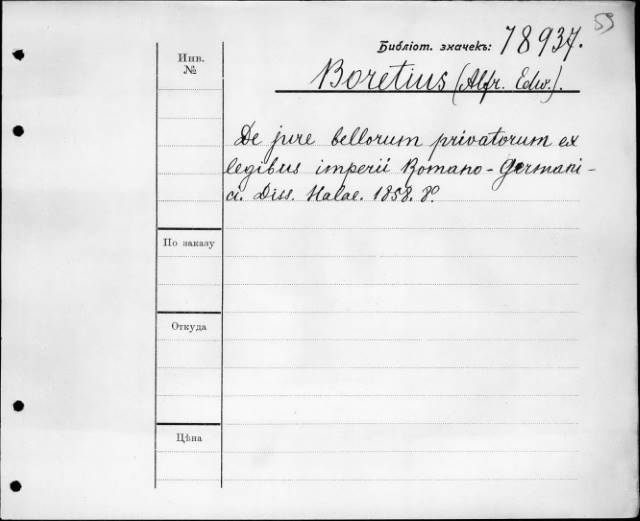 53
Библіот. значекъ: 78937.
Инв.
№
Boretius (Alfr. Edw.).
De jure bellorum privatorum ex
legibus imperii Romano-Germani-
ci. Diss. Halae. 1858. 8º.
По заказу
Откуда
Цѣна